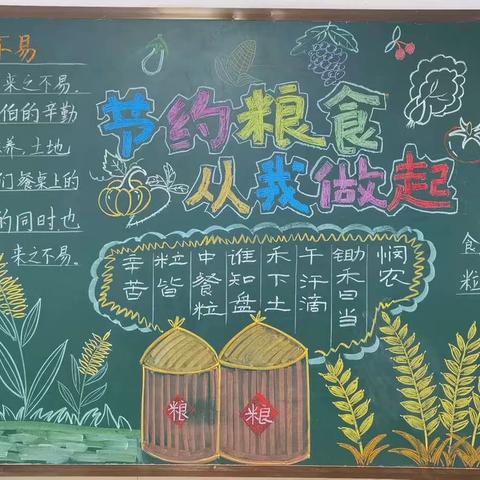 节约粮食
从我做起
不易
来之不易。
伯的辛勤
养,土地
们餐桌上的
的同时,也
来之不易。
悯农
锄禾日当
午汗滴
禾下土
谁知盘
中餐粒
粒皆
辛苦
食
粒
粮
粮